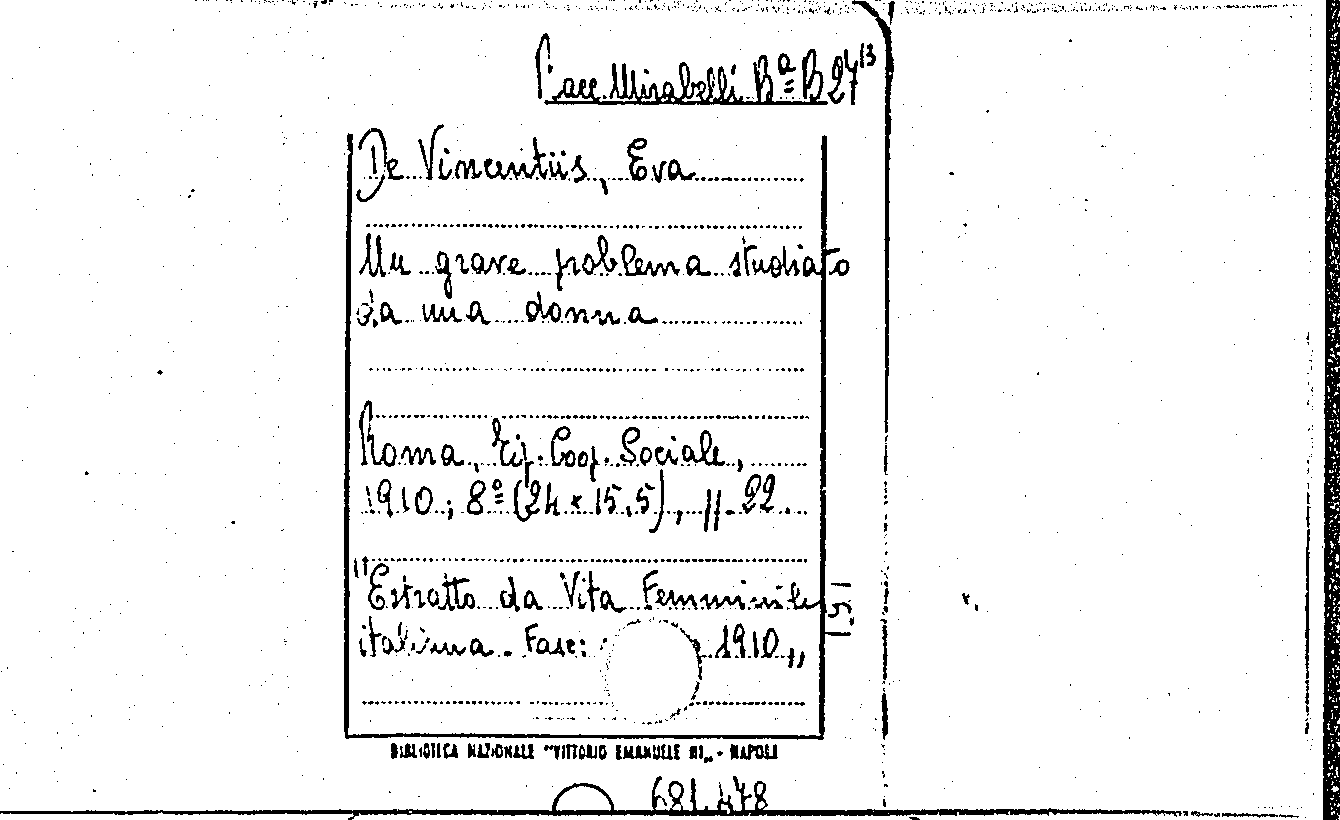 Racc. Mirabelli Bª B 27¹³
De Vincentiis, Eva
Un grave problema studiato
da una donna
Roma, Tip. Coop. Sociale,
1910; 8º (24 x 15,5), pp. 22.
"Estratto da Vita Femminile
italiana. Fasc: 1910"
151
BIBLIOTECA NAZIONALE "VITTORIO EMANUELE III" - NAPOLI